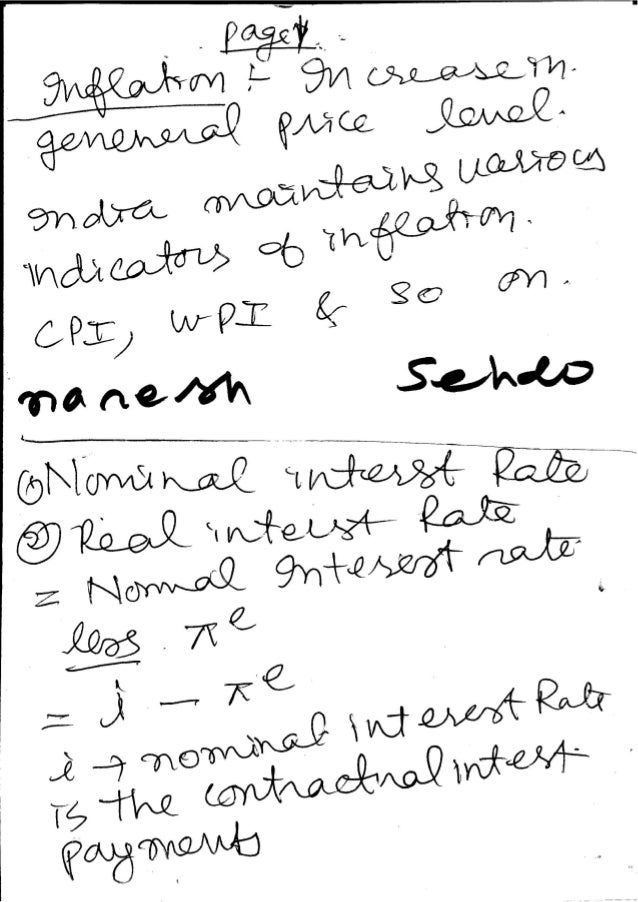 page 1.
Inflation :- Increase in.
geneneral price level.
India maintains various
indicators of inflation.
CPI, WPI & so on.
naresh Sehdo
① Nominal interst Rate
② Real interst Rate
= Nomnal Interest rate
less π^e
= i - π^e
i → nominal interest Rate
is the contractual intest
payments